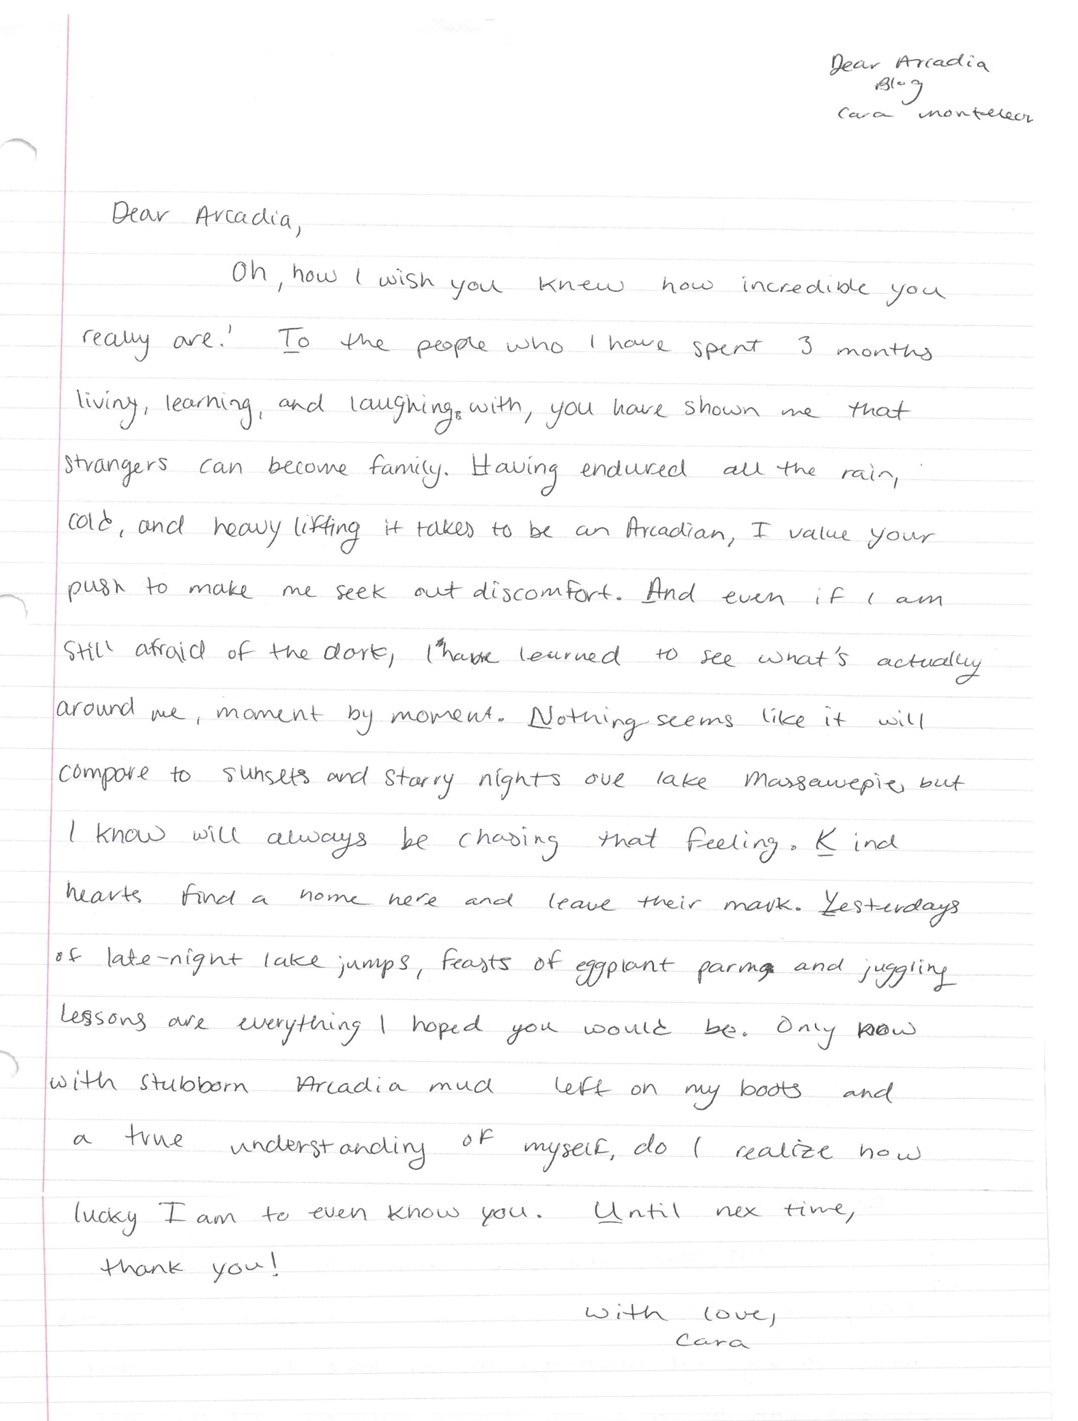 Dear Arcadia
Blog
Cara
Dear Arcadia,
Oh, how I wish you knew how incredible you
really are! To the people who I have spent 3 months
living, learning, and laughing with, you have shown me that
strangers can become family. Having endured all the rain,
cold, and heavy lifting it takes to be an Arcadian, I value your
push to make me seek out discomfort. And even if I am
still afraid of the dark, I have learned to see what's actually
around me, moment by moment. Nothing seems like it will
compare to sunsets and starry nights ove lake Massawepie, but
I know will always be chasing that feeling. Kind
hearts find a home here and leave their mark. Yesterdays
of late-night lake jumps, feasts of eggplant parm and juggling
lessons are everything I hoped you would be. Only now
with stubborn Arcadia mud left on my boots and
a true understanding of myself, do I realize how
lucky I am to even know you. Until nex time,
thank you!
With love,
Cara